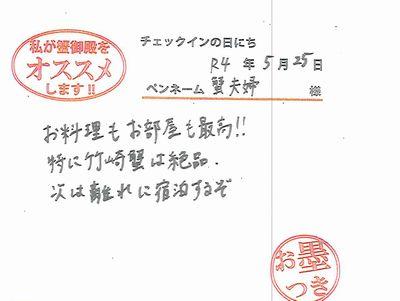 私が蟹御殿を
オススメ
します!!
チェックインの日にち
R4 年 5 月 25 日
ペンネーム 蟹夫婦 様
お料理もお部屋も最高!!
特に竹崎蟹は絶品.
次は離れに宿泊するぞ
お墨
つき